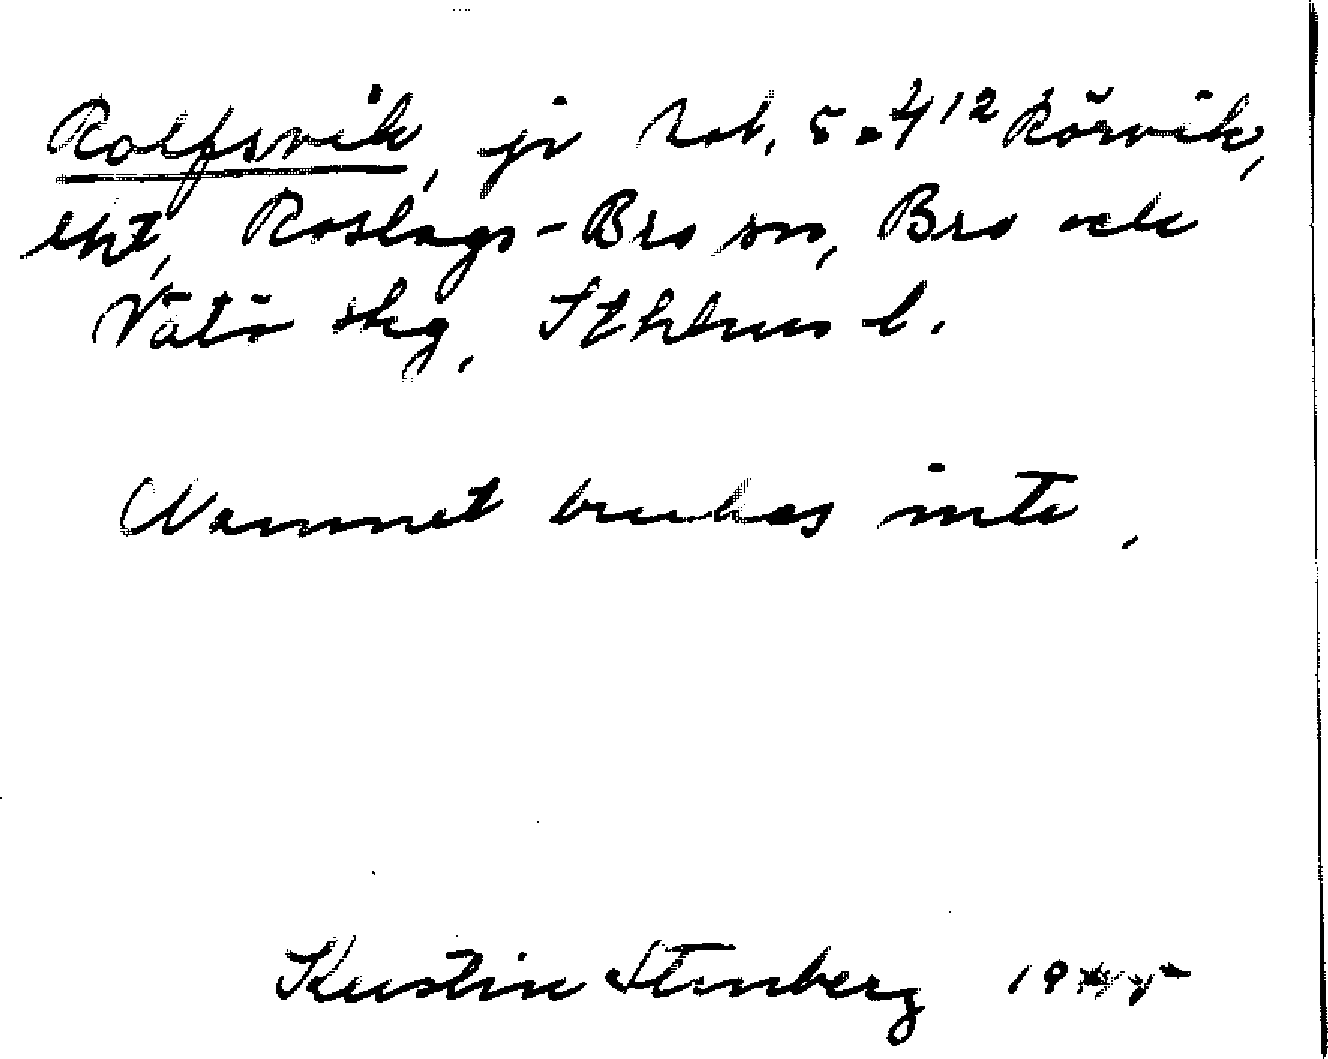 Rolfsvik, jr Rot. 5.412 Rörvik,
Roslags-Bro sn, Bro och
Vätö skg, Sthlms l.
Namnet brukas inte.
Kerstin Stenberg 19